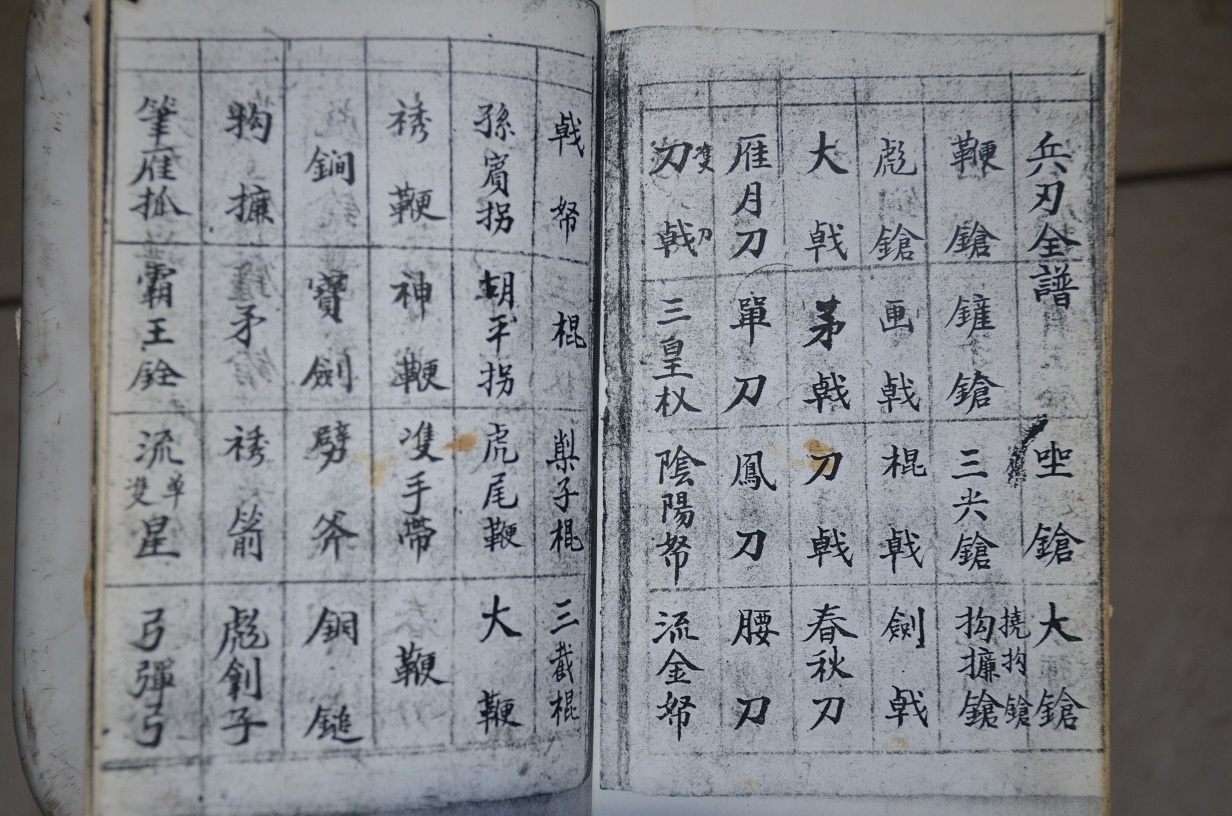 兵刃全譜
坐鎗
大鎗
鞭鎗
鏟鎗
三尖鎗
抅擓鎗
撓抅鎗
彪鎗
画戟
棍戟
劍戟
大戟
茅戟
刀戟
春秋刀
雁月刀
單刀
鳳刀
腰刀
刀戟
三皇杈
陰陽帑
流金帑
戟帑
棍
梨子棍
三截棍
孫賓拐
朝平拐
虎尾鞭
大鞭
神鞭
手帶
鞭
鐧
寶劍
劈斧
銅鎚
矛
箭
彪劊子
筆雁抓
霸王銓
流星
單
雙
弓彈弓